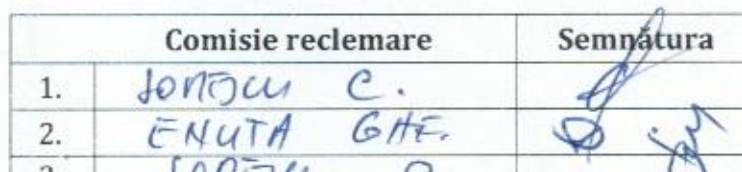 Comisie reclemare Semnătura
1. IONESCU C.
2. ENUTA GHE.